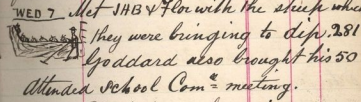 WED 7 Met JHB & Flor with the sheep which
they were bringing to dip. 281
Goddard also brought his 50
Attended School Com^ee meeting.